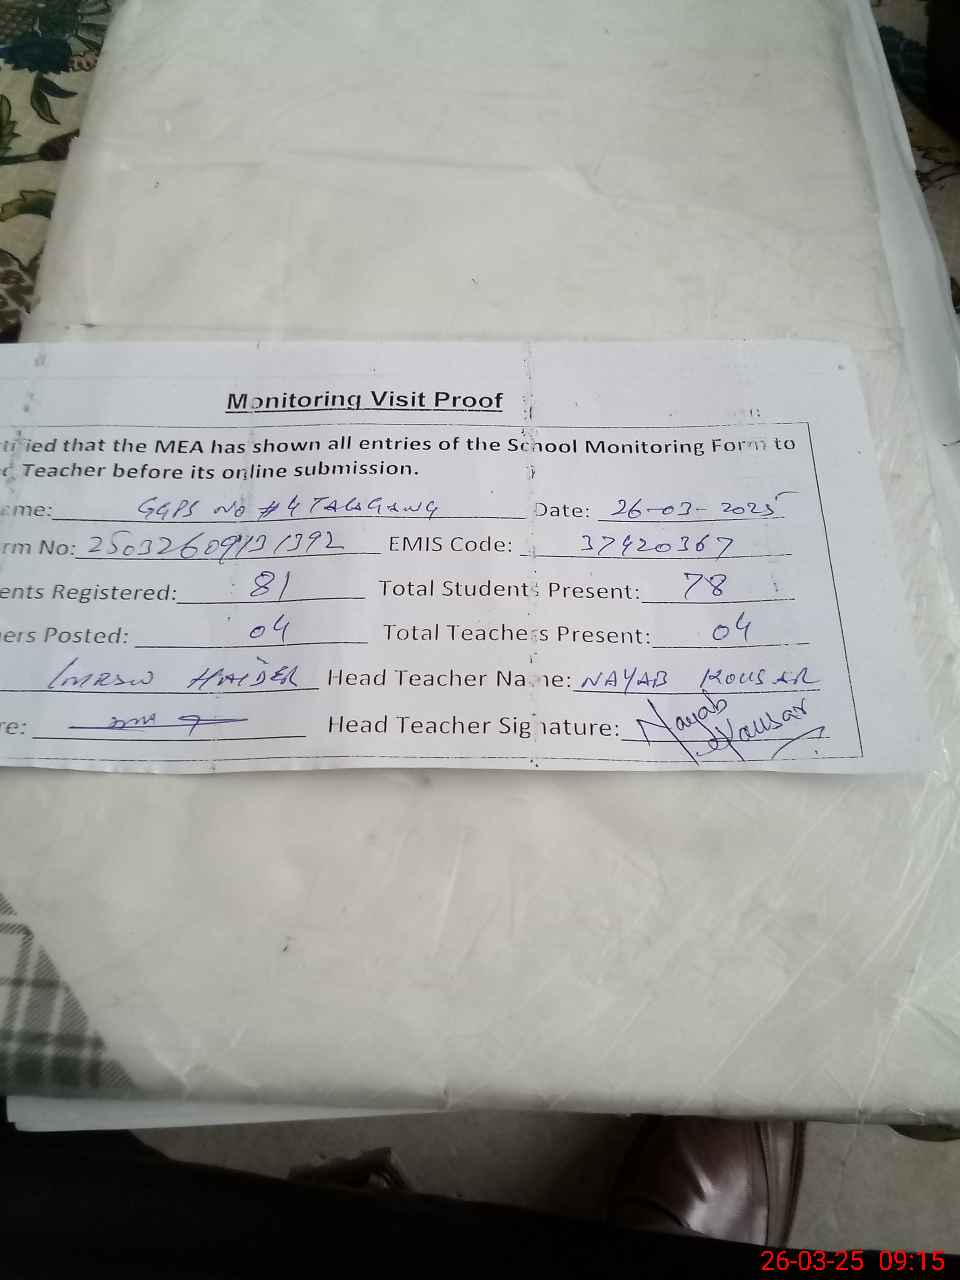 Monitoring Visit Proof
tified that the MEA has shown all entries of the School Monitoring Form to
Teacher before its online submission.
me: GGPS No #4 TALAGANG Date: 26-03-2025
rm No: 25032609131392 EMIS Code: 37420367
ents Registered: 81 Total Students Present: 78
ers Posted: 04 Total Teachers Present: 04
HAIDER Head Teacher Name: NAYAB KOUSAR
re: Head Teacher Signature: Nayab Kousar
26-03-25 09:15